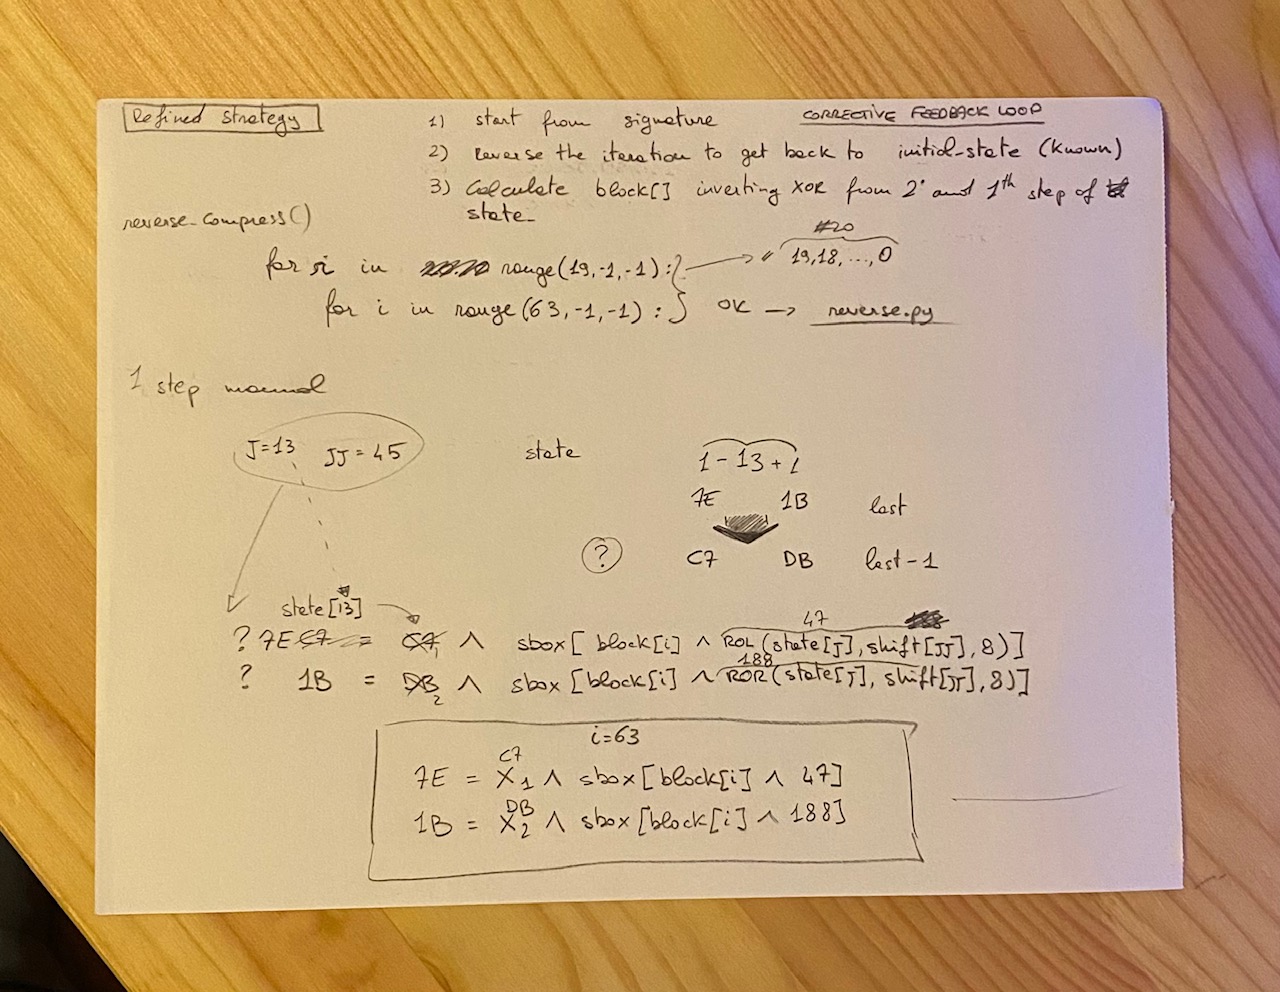 Refined Strategy
CORRECTIVE FEEDBACK LOOP
1) start from signature
2) Reverse the iteration to get back to initial-state (known)
3) Calculate block[] inverting XOR from 2° and 1th step of
state_
reverse_compress()
#20
for r in range(19,-1,-1): 19,18,...,0
for i in range(63,-1,-1): OK → reverse.py
1 step manual
J=13 JJ=45 state 1-13+1
7E 1B last
? C7 DB last-1
state[13]
47
? 7E C7 = C7 1 ^ sbox[block[i] ^ ROL(state[J], shift[JJ], 8)]
188
? 1B = DB 2 ^ sbox[block[i] ^ ROR(state[J], shift[JJ], 8)]
i=63
C7
7E = X1 ^ sbox[block[i] ^ 47]
DB
1B = X2 ^ sbox[block[i] ^ 188]